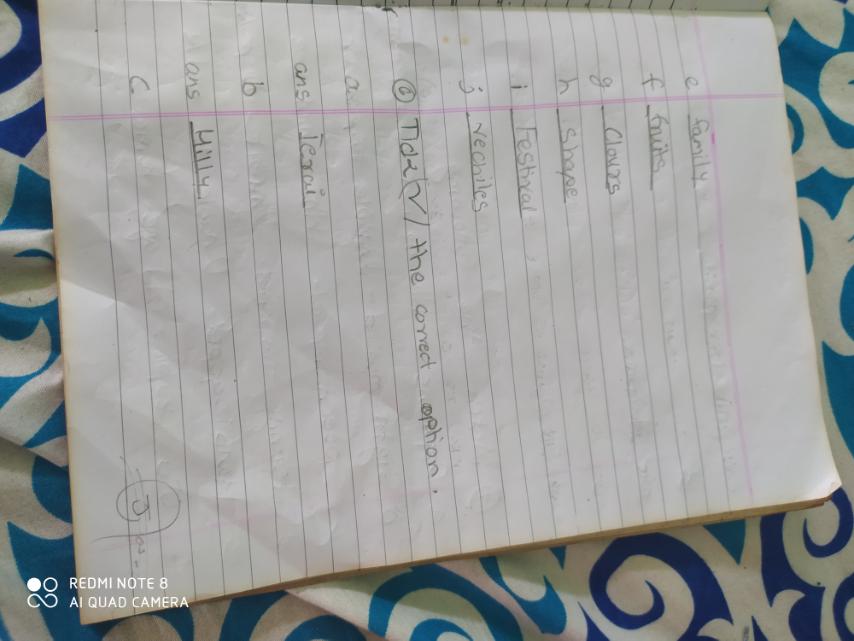 e family
f fruits
g Clours
h Shape
i Festival
j vechiles
c Tick(✓) the correct option.
a
ans Terai
b
ans Hilly
c
REDMI NOTE 8
AI QUAD CAMERA